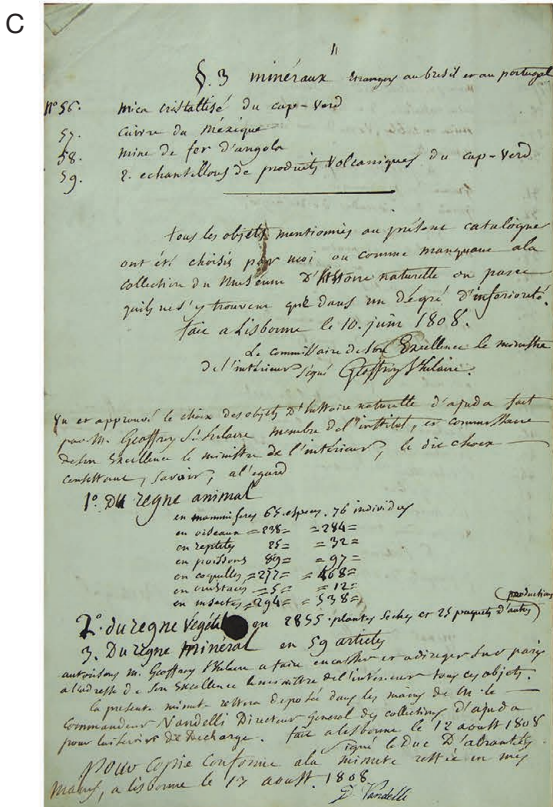 C
§. 3 minéraux étrangers au brésil et au portugal
N° 56. mica cristallisé du cap-verd
57. Cuivre du Méxique
58. mine de fer d'angola
59. 2. echantillons de produits Volcaniques du cap-verd
tous les objets mentionnés au présent catalogue
ont été choisis par moi ou comme manquant a la
collection du Muséum D'histoire naturelle ou parce
quils ne s'y trouvent que dans un dégré d'infériorité.
fait a Lisbonne le 10. juin 1808.
Le commissaire de son Excellence le ministre
de l'intérieur signé Geoffroy St hilaire.
Vu et approuvé le choix des objets D'histoire naturelle d'ajuda fait
par M. Geoffroy St. hilaire membre de l'institut, et commissaire
de son Excellence le ministre de l'intérieur, le dit choix
consistant, savoir, a l'égard
1°. Du regne animal
en mammiferes 65. especes. 76 individus
en oiseaux =238= =284=
en reptiles 25= =32=
en poissons 89= =97=
en coquilles =277= =468=
en crustacés =5= =12=
en insectes =294= =538=
2°. du regne végétal en 2855 plantes seches et 25 paquets d'autres productions
3. Du règne minéral en 59 articles
autorisons M. Geoffroy St hilaire a faire encaisser et a diriger sur paris
a l'adresse de Son Excellence le ministre de l'intérieur tous ces objets.
la presente minute restera deposée dans les mains de M. le
commandeur Vandelli Directeur general des collections d'ajuda
pour lui servir de decharge. fait a lisbonne le 12 aoust 1808
signé le Duc D'abrantes
pour copie conforme a la minute restée en mes
mains, a lisbonne le 17 aoust 1808
D. Vandelli